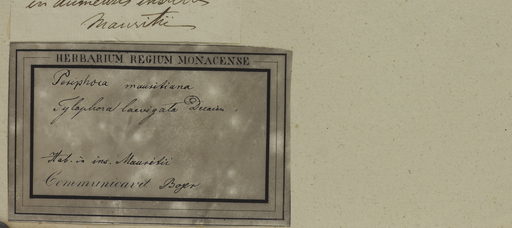 in dumetis insulae
Mauritii
HERBARIUM REGIUM MONACENSE
mauritiana
Tylophora laevigata Decaisn
Hab. in ins. Mauritii
Communicavit Bojer